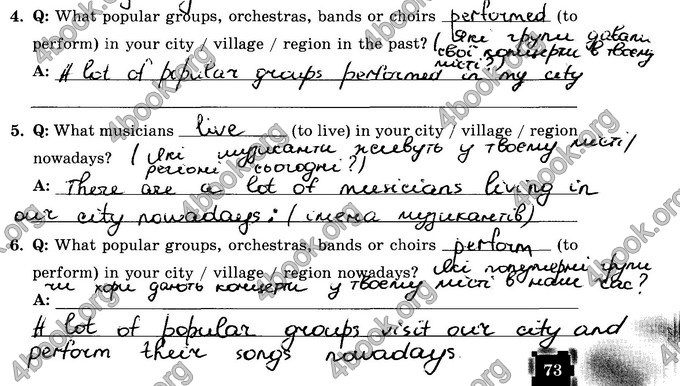 4. Q: What popular groups, orchestras, bands or choirs performed (to
perform) in your city / village / region in the past? (Які групи давали
свої концерти в твоєму
місті?)
A: A lot of popular groups performed in my city
5. Q: What musicians live (to live) in your city / village / region
nowadays? (Які музиканти живуть у твоєму місті/
регіоні сьогодні?)
A: There are a lot of musicians living in
our city nowadays: (імена музикантів)
6. Q: What popular groups, orchestras, bands or choirs perform (to
perform) in your city / village / region nowadays? Які популярні групи
чи хори дають концерти у твоєму місті в наш час?
A:
A lot of popular groups visit our city and
perform their songs nowadays.
73
4book.org